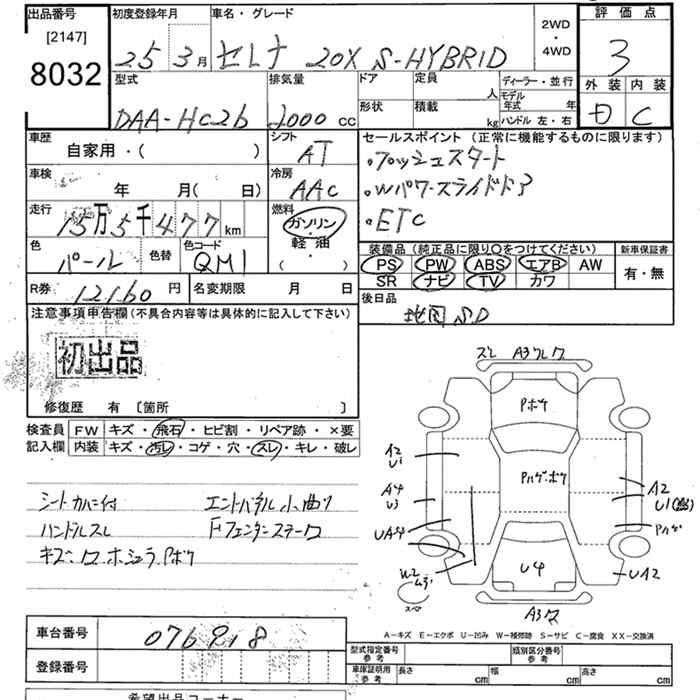 出品番号 [2147] 8032
初度登録年月 25 3月
車名・グレード セレナ 20X S-HYBRID
2WD・4WD
評価点 3
外装 D 内装 C
型式 DAA-HC26
排気量 2000 cc
ドア 形状
定員 人 積載 kg
ディーラー・並行
モデル年式 年
ハンドル 左・右
車歴 自家用・( )
シフト AT
車検 年 月( 日)
冷房 AAC
走行 15万5千477km
燃料 ガソリン・軽油・( )
色 パール 色替
色コード QM1
R券 12160円 名変期限 月 日
セールスポイント(正常に機能するものに限ります)
・プッシュスタート
・Wパワースライドドア
・ETC
装備品(純正品に限り○をつけてください)
新車保証書
PS PW ABS エアB AW
SR ナビ TV カワ
有・無
後日品 地図SD
注意事項申告欄(不具合内容等は具体的に記入して下さい)
初出品
修復歴 有 〔箇所 〕
検査員記入欄
FW キズ・飛石・ヒビ割・リペア跡・×要
内装 キズ・汚レ・コゲ・穴・スレ・キレ・破レ
シートカバー付 エンドパネル小曲り
ハンドルスレ Fフェンダーステーワ
キズ・ワ・ホシュウ・Pボケ
スレ A3 ワレ ワ
Pボケ
Pハゲ・ボケ
U4
A2
U1
A4
U3
UA4
W2
スペア
A2
U1
Pハゲ
UA2
A3 ワ
A-キズ E-エクボ U-凹み W-補修跡 S-サビ C-腐食 XX-交換済
車台番号
登録番号
型式指定番号 参考
類別区分番号 参考
車庫証明用 参考 長さ cm 幅 cm 高さ cm
希望出品コーナー